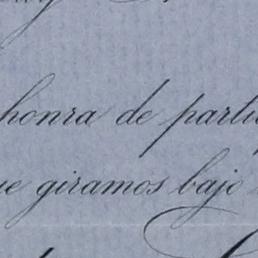 honra de parti
ue giramos bajo